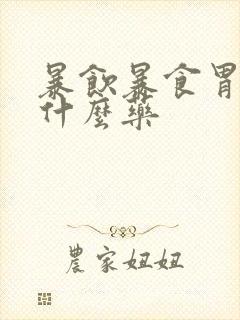 暴飲暴食胃
什麼藥
農家妞妞